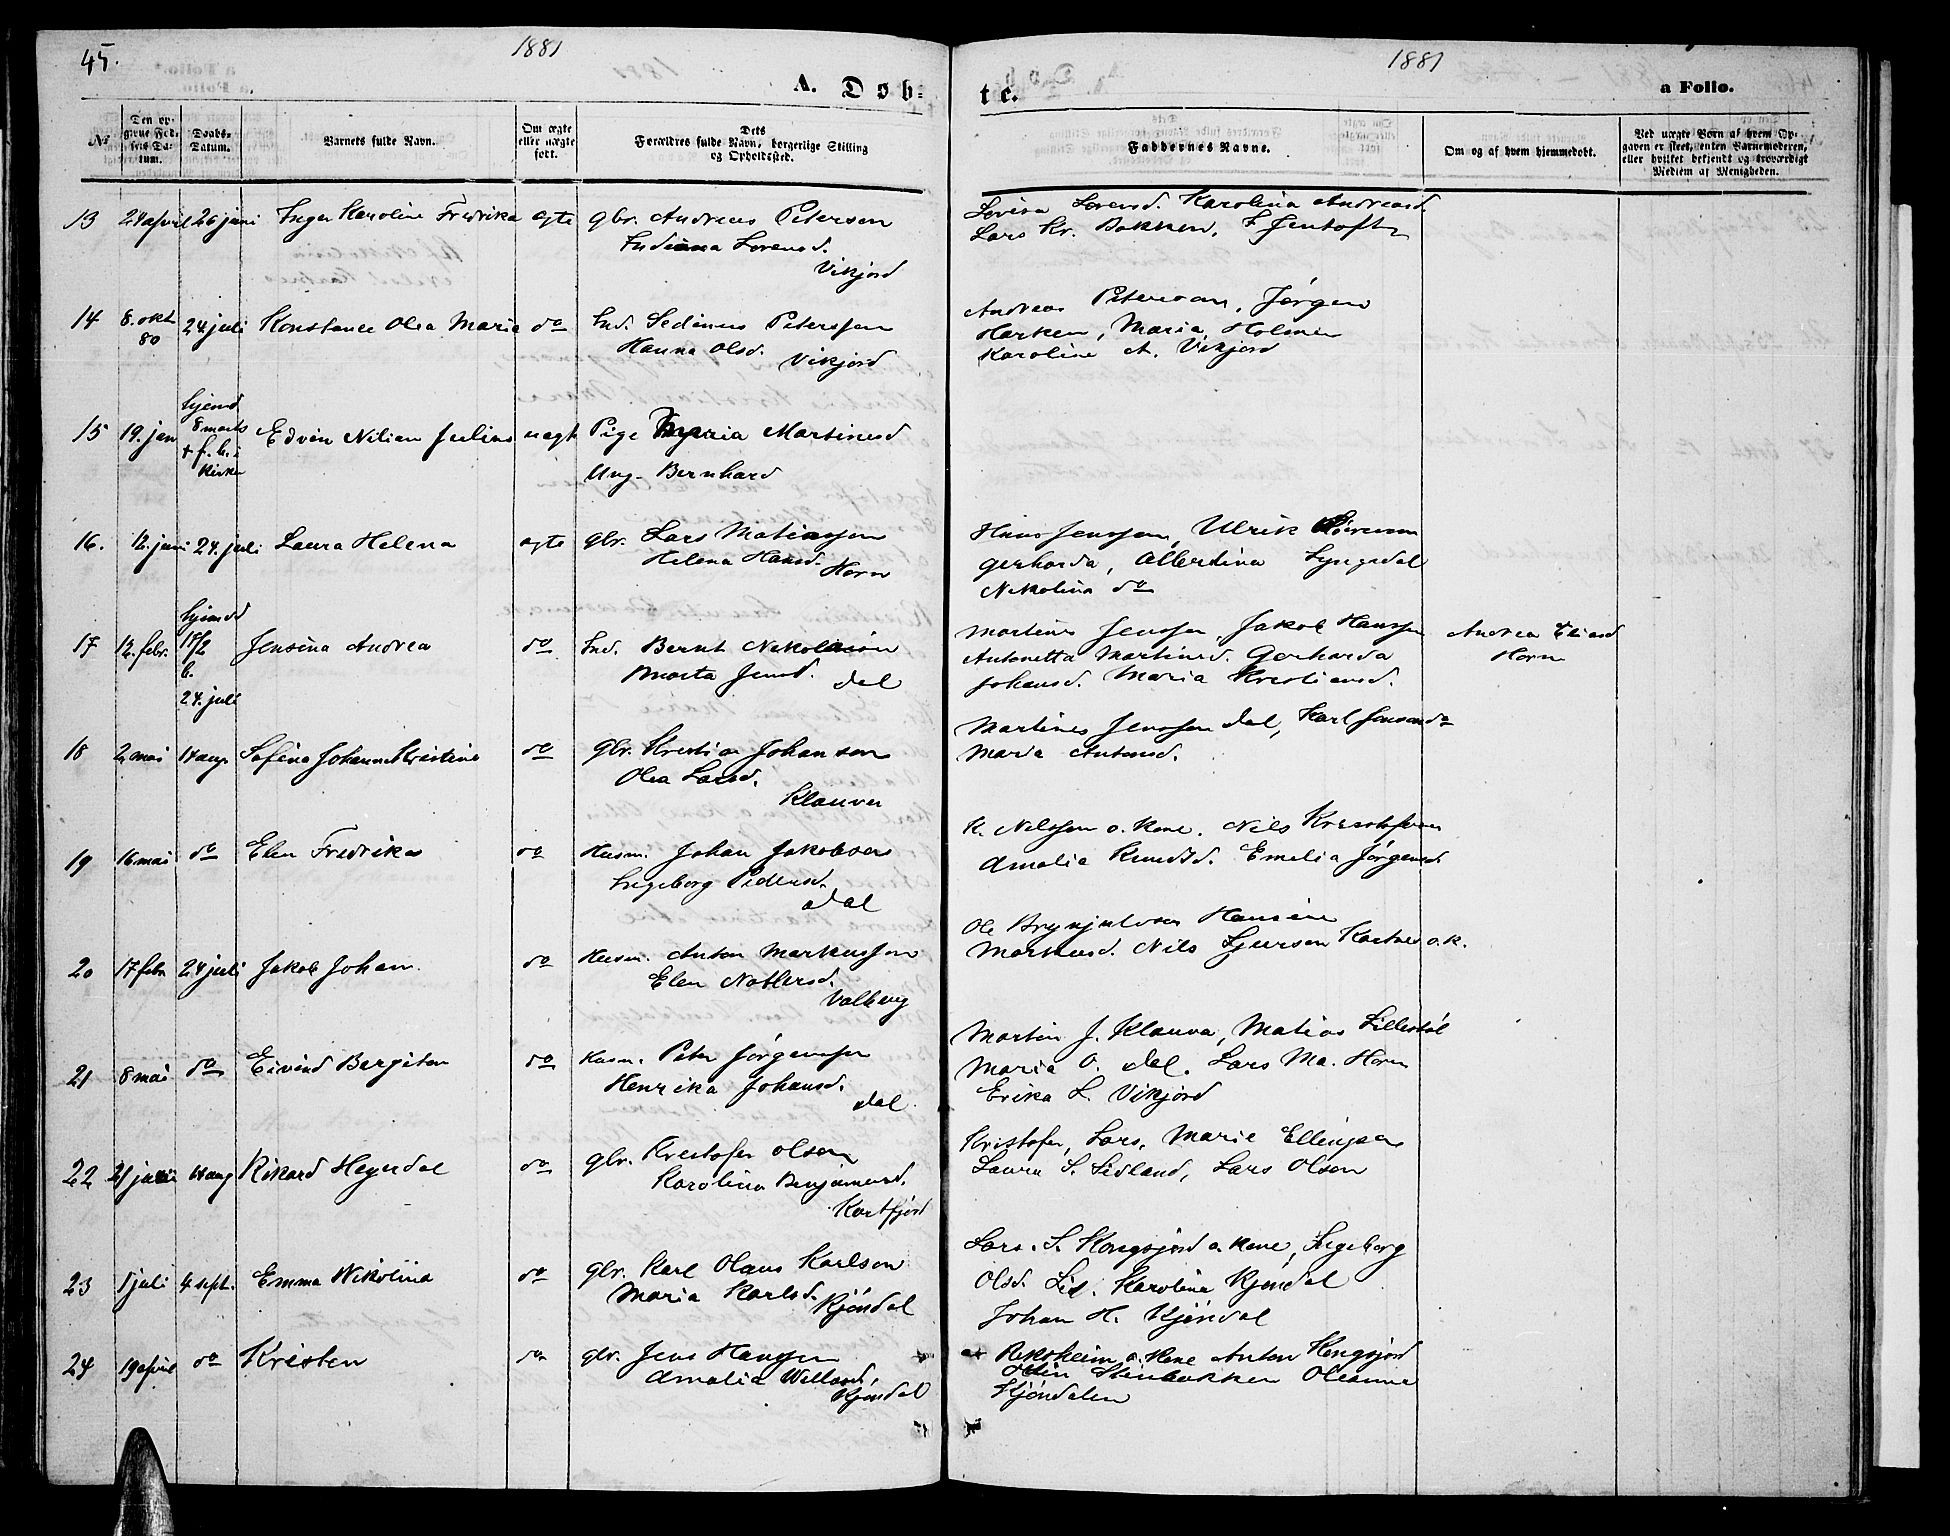 45.
1881
1881
A. Døb-
te.
a Folio.
No
Den op-
givne Fød-
sels Da-
tum.
Daabs-
Datum.
Barnets fulde Navn.
Om ægte
eller uægte
født.
Dets
Forældres fulde Navn, borgerlige Stilling
og Opholdsted.
Faddernes Navne.
Om og af hvem hjemmedøbt.
Ved uægte Børn af hvem Op-
gaven er skeet, enten Barnemoderen,
eller hvilket bekjendt og troværdigt
Medlem af Menigheden.
13 24 april 26 juni Inger Karoline Fredrika ægte gbr. Andreas Peterson
Indianna Lorensd.
Vikjord
Lovisa Lorensd. Karolina Andreasd.
Lars Kr. Bakken, F Jentoft
14 8. okt 80 24 juli Konstance Olea Maria do Ind. Sedinius Peterssen
Hanna Olsd. Vikjord
Andreas Peterson, Jørgen
Harken, Maria Holmen
Karoline A. Vikjord
15 19. jan hjemd 8 marts + f. b. i kirken Edvin Nilian Julius uægt Pige Maria Martinesd
Ung. Bernhard
16. 12. juni 24. juli Laura Helena ægte gbr. Lars Matiassen
Helena Hansd. Horn
Hans Jenssen, Ulrik Sørensen
Gerharda, Albertina Lyngedal
Nekolina do
17 12. febr. hjemd 17/2 b. 24. juli Jensina Andrea do Ind. Bernt Nekolaisen
Marta Jensd. Dal
Martines Jenssen, Jakob Hanssen
Antonetta Martinsd. Gerharda
Johansd. Maria Kristiansd.
Andrea Eliasd
Horn
18 2 mai 14 aug Sofina Johanna Kristine do gbr. Kristian Johanson
Olea Larsd.
Klauva
Martines Jenssen Dal, Karl Jenson do
Maria Antonsd.
19 16 mai do Elen Fredrika do Husm. Johan Jakobsen
Ingeborg Pedersd.
Dal
K. Nilssen o. Kone. Nils Kristofersen
Amalia Knudsd. Emelia Jørgensd.
20 17 febr 24 juli Jakob Johan do Husm. Anton Markussen
Elen Notlersd.
Valberg
Ole Brynjulvsen Hansine
Markusd. Nils Sjursen Kartnes o. k.
21 8 mai do Eivind Bergiton do Husm. Peter Jørgenssen
Henrika Johansd.
Dal
Martin J. Klauva, Matias Lillestöl
Maria O. Dal. Lars Ma. Horn
Erika L. Vikjord
22 21 juni 14 aug Rikard Hegerdal do gbr. Kristofer Olsen
Karolina Benjaminsd.
Kartfjord
Kristofer, Lars, Marie Ellingsen
Laura S. Lidland, Lars Olsen
23 1 juli 4 sept. Emma Nikolina do gbr. Karl Olaus Karlson
Maria Karlsd. Kjöndal
Lars S. Kongsjord o. kone, Ingeborg
Olsd. Lid. Karolina Kjöndal
Johan H. Kjöndal
24 19 april do Kristen do gbr. Jens Hanssen
Amalia Willard,
Kjöndal
Reksheim o. Kone Anton Kongsjord
Otin Stenbakken Oleanna
Kjöndalen